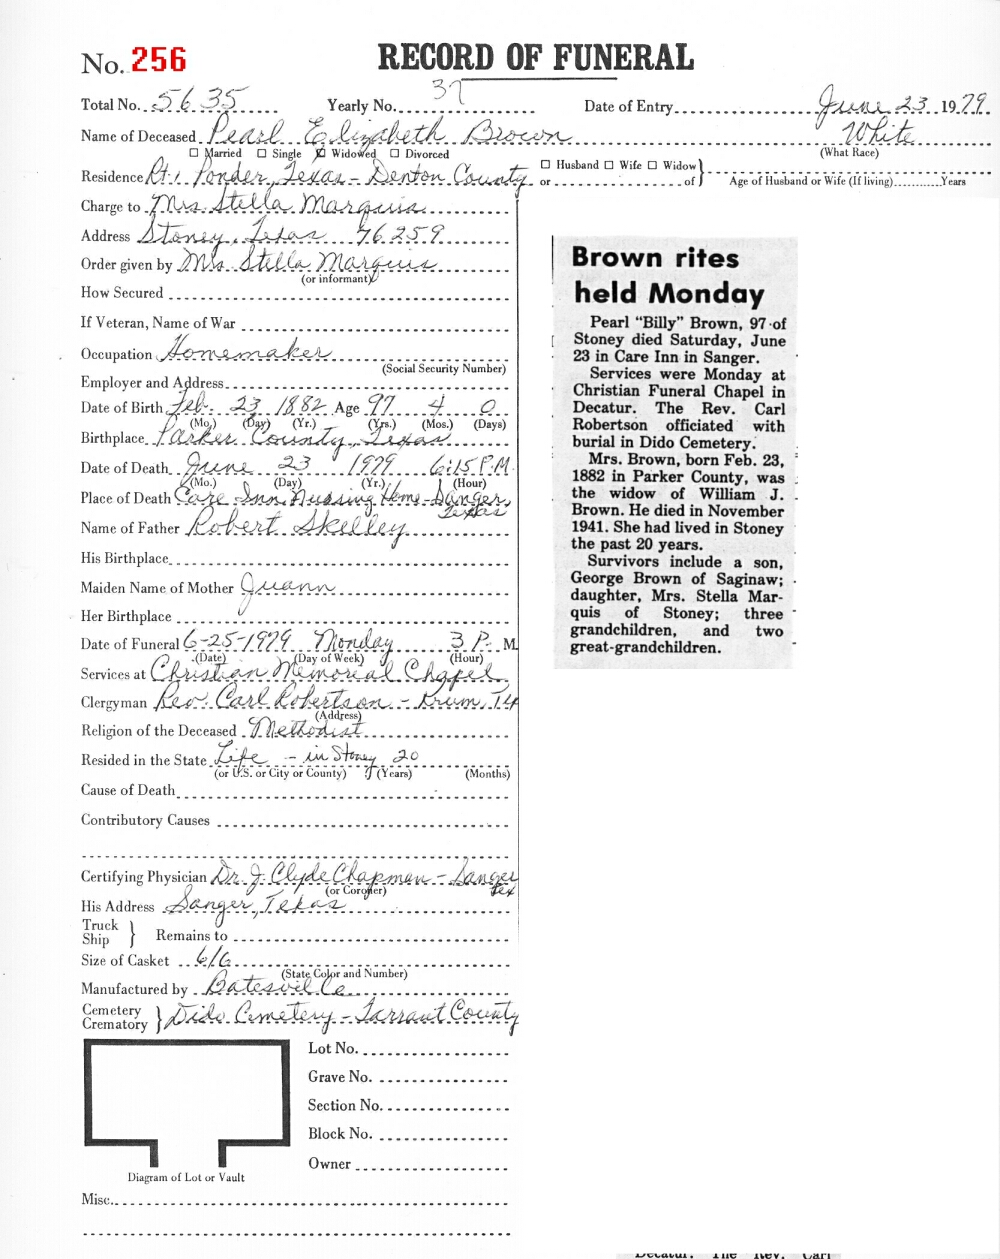 No. 256
RECORD OF FUNERAL
Total No. 5635 Yearly No. 37 Date of Entry June 23 1979
Name of Deceased Pearl Elizabeth Brown White
☐ Married ☐ Single ☒ Widowed ☐ Divorced (What Race)
Residence Rt. 1 Ponder, Texas - Denton County ☐ Husband ☐ Wife ☐ Widow
or of } Age of Husband or Wife (If living) Years
Charge to Mrs. Stella Marquis
Address Stoney, Texas 76259
Order given by Mrs. Stella Marquis
(or informant)
How Secured
If Veteran, Name of War
Occupation Homemaker
(Social Security Number)
Employer and Address
Date of Birth Feb. 23 1882 Age 97 4 0
(Mo.) (Day) (Yr.) (Yrs.) (Mos.) (Days)
Birthplace Parker County, Texas
Date of Death June 23 1979 6:15 P.M.
(Mo.) (Day) (Yr.) (Hour)
Place of Death Care Inn Nursing Home - Sanger,
Texas
Name of Father Robert Skelley
His Birthplace
Maiden Name of Mother Juann
Her Birthplace
Date of Funeral 6-25-1979 Monday 3 P. M.
(Date) (Day of Week) (Hour)
Services at Christian Memorial Chapel
Clergyman Rev. Carl Robertson - Krum, Tex
(Address)
Religion of the Deceased Methodist
Resided in the State Life - in Stoney 20
(or U.S. or City or County) (Years) (Months)
Cause of Death
Contributory Causes
Certifying Physician Dr. J. Clyde Chapman - Sanger
Tex
(or Coroner)
His Address Sanger, Texas
Truck
Ship } Remains to
Size of Casket 6/6
(State Color and Number)
Manufactured by Batesvil Co
Cemetery
Crematory } Dido Cemetery - Tarrant County
Lot No.
Grave No.
Section No.
Block No.
Owner
Diagram of Lot or Vault
Misc.
Brown rites
held Monday
Pearl "Billy" Brown, 97 of
Stoney died Saturday, June
23 in Care Inn in Sanger.
Services were Monday at
Christian Funeral Chapel in
Decatur. The Rev. Carl
Robertson officiated with
burial in Dido Cemetery.
Mrs. Brown, born Feb. 23,
1882 in Parker County, was
the widow of William J.
Brown. He died in November
1941. She had lived in Stoney
the past 20 years.
Survivors include a son,
George Brown of Saginaw;
daughter, Mrs. Stella Mar-
quis of Stoney; three
grandchildren, and two
great-grandchildren.
Decatur. The Rev. Carl